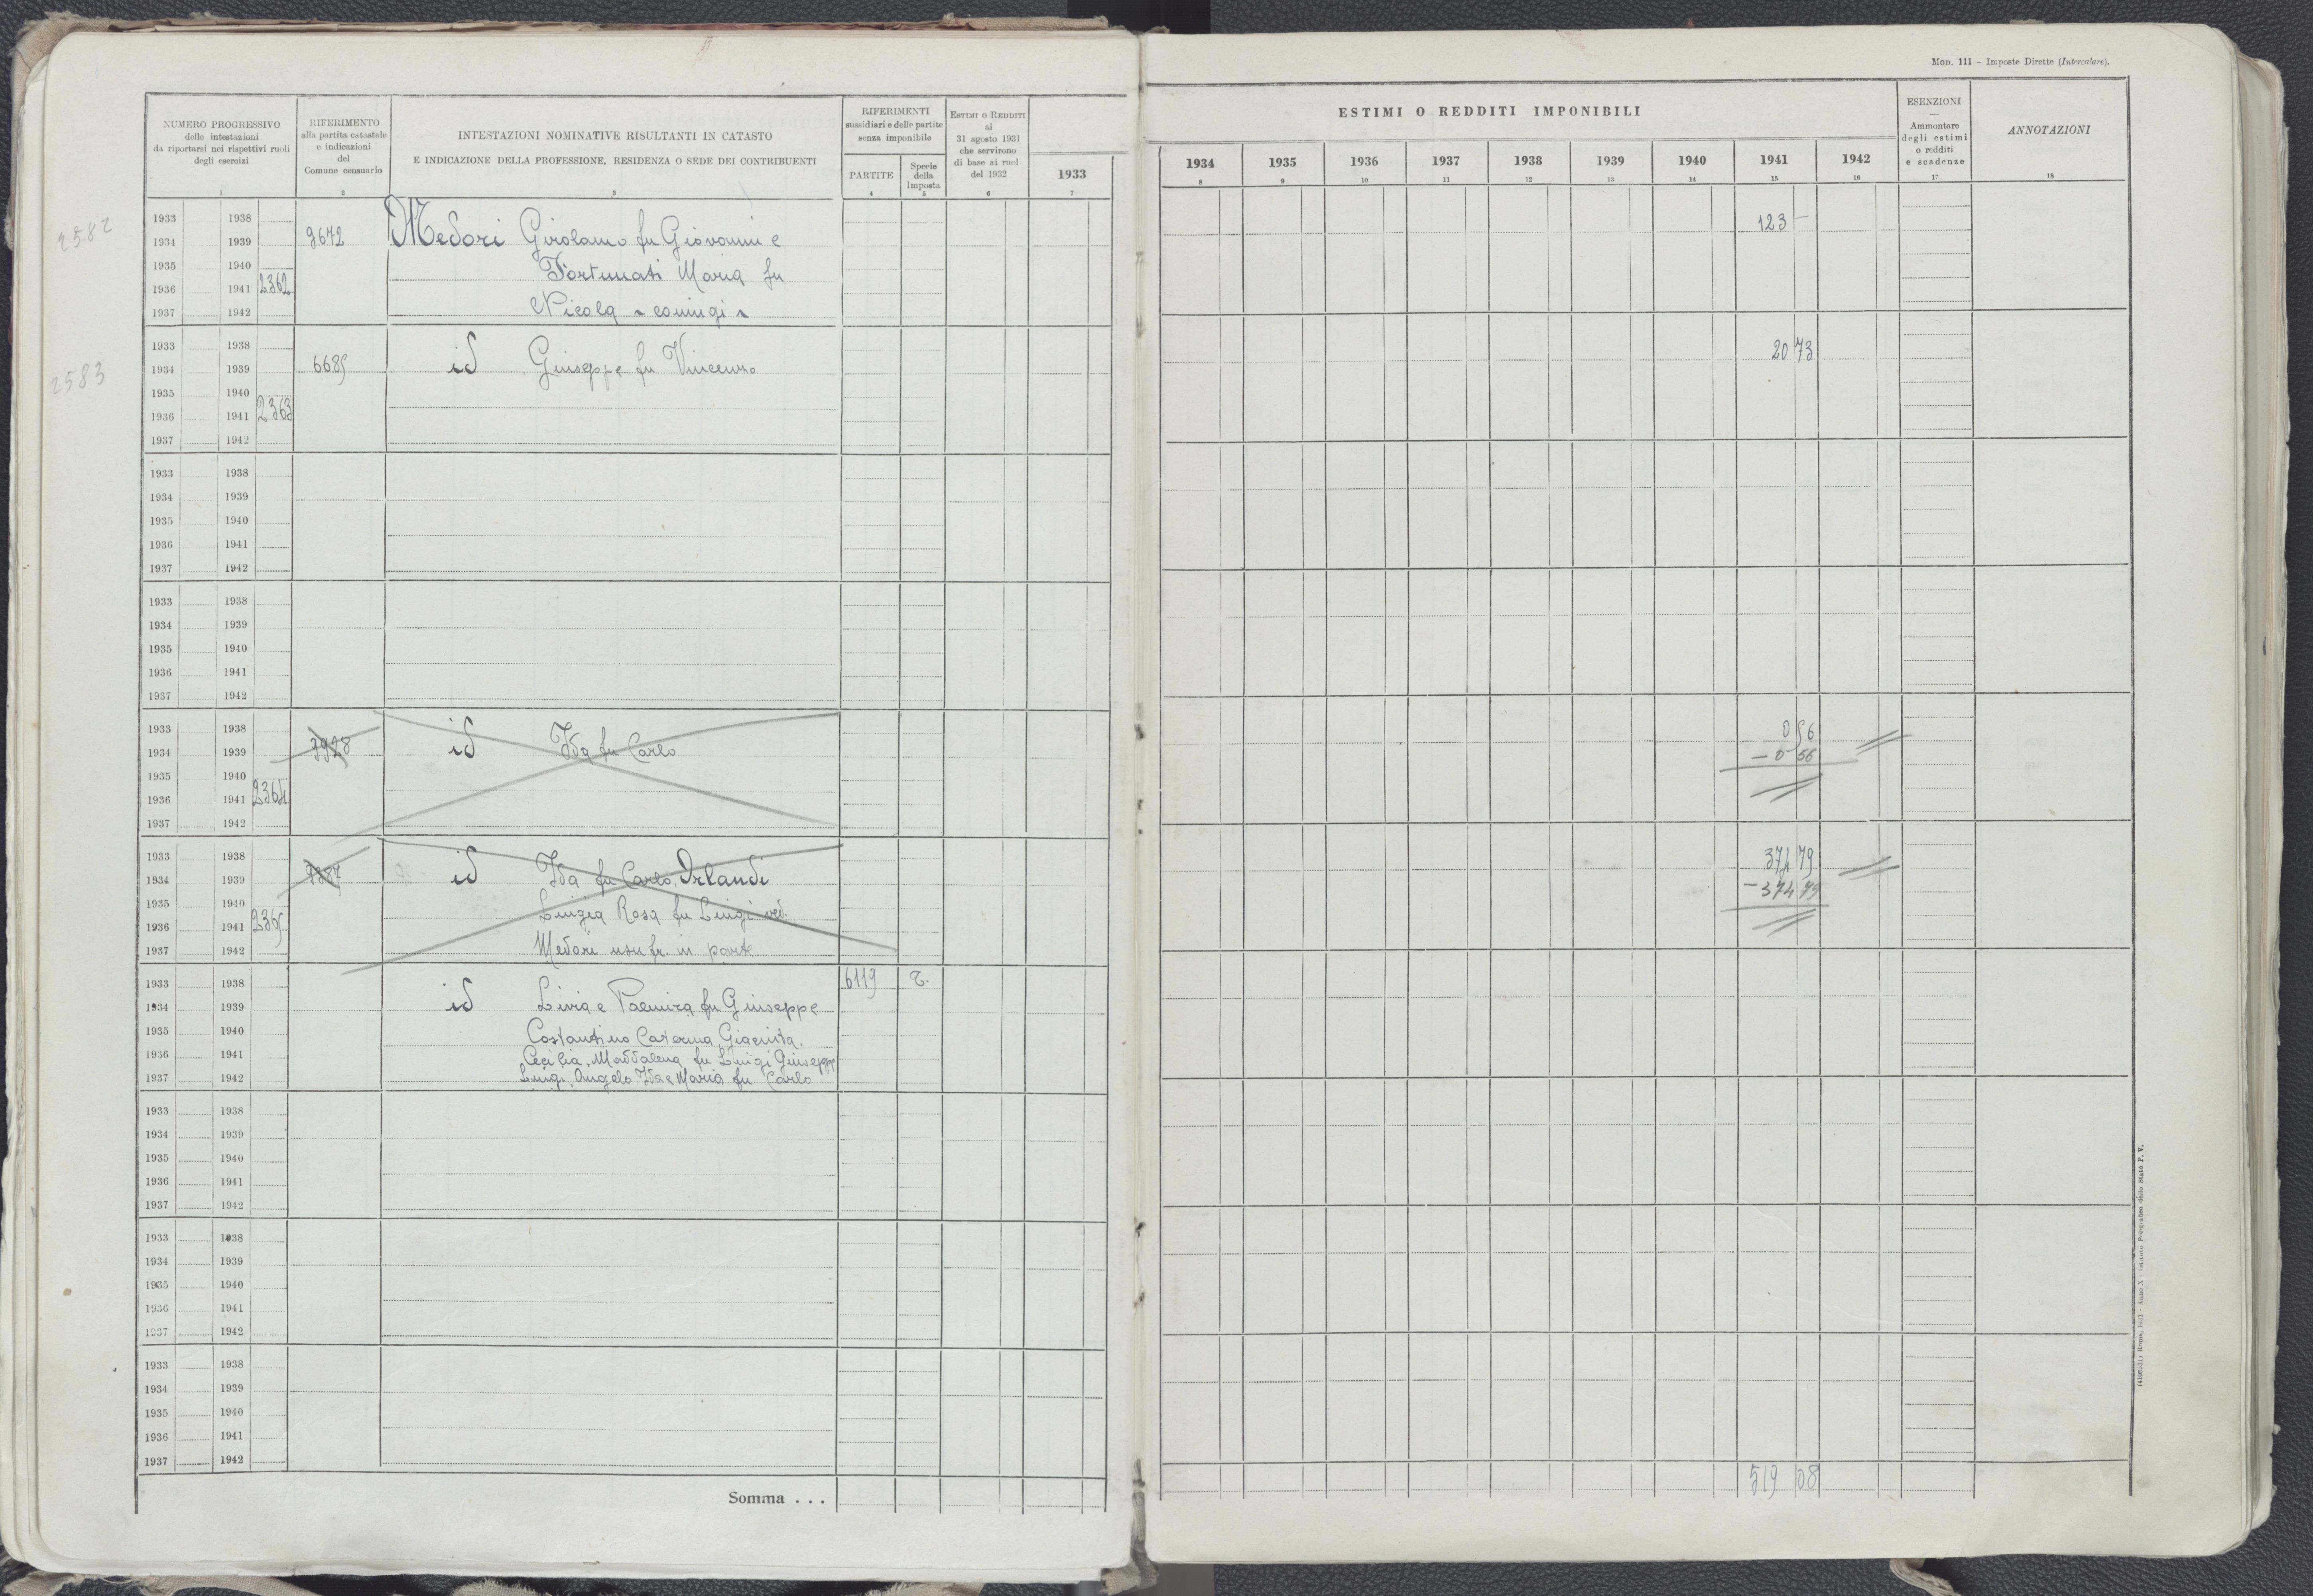 MOD. 111 – Imposte Dirette (Intercalare).
NUMERO PROGRESSIVO
delle intestazioni
da riportarsi nei rispettivi ruoli
degli esercizi
1
RIFERIMENTO
alla partita catastale
e indicazioni
del
Comune censuario
2
INTESTAZIONI NOMINATIVE RISULTANTI IN CATASTO
E INDICAZIONE DELLA PROFESSIONE, RESIDENZA O SEDE DEI CONTRIBUENTI
3
RIFERIMENTI
sussidiari e delle partite
senza imponibile
PARTITE
4
Specie
della
Imposta
5
ESTIMI O REDDITI
al
31 agosto 1931
che servirono
di base ai ruoli
del 1932
6
ESTIMI O REDDITI IMPONIBILI
1933
7
1934
8
1935
9
1936
10
1937
11
1938
12
1939
13
1940
14
1941
15
1942
16
ESENZIONI
—
Ammontare
degli estimi
o redditi
e scadenze
17
ANNOTAZIONI
18
2582
1933 1938
1934 1939 9672 Medori Girolamo fu Giovanni e 123 –
1935 1940 Fortunati Maria fu
1936 1941 2362
1937 1942 Nicola - coniugi -
2583
1933 1938
1934 1939 6685 id Giuseppe fu Vincenzo 20 73
1935 1940
1936 1941 2363
1937 1942
1933 1938
1934 1939
1935 1940
1936 1941
1937 1942
1933 1938
1934 1939
1935 1940
1936 1941
1937 1942
1933 1938 0 56
1934 1939 id Ida fu Carlo – 0 56
1935 1940
1936 1941 2364
1937 1942
1933 1938 374 79
1934 1939 id Ida fu Carlo, Orlandi – 374 79
1935 1940 Luigia Rosa fu Luigi ved.
1936 1941 2365
1937 1942 Medori usufr. in parte
1933 1938 6119 R.
1934 1939 id Livia e Palmira fu Giuseppe
1935 1940 Costantino Caterina, Giacinta,
1936 1941 Cecilia, Maddalena fu Luigi Giuseppe
1937 1942 Luigi, Angelo Ida e Maria fu Carlo
1933 1938
1934 1939
1935 1940
1936 1941
1937 1942
1933 1938
1934 1939
1935 1940
1936 1941
1937 1942
1933 1938
1934 1939
1935 1940
1936 1941
1937 1942
Somma . . . 519 08